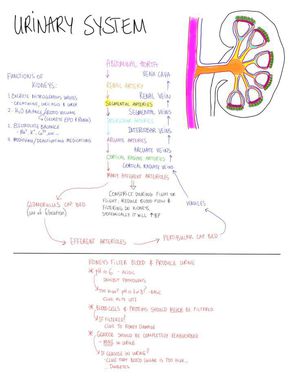 URINARY SYSTEM
FUNCTIONS OF
KIDNEYS:
1. EXCRETE NITROGENOUS WASTES
- CREATININE, URIC ACID & UREA
2. H2O BALANCE/BLOOD VOLUME
3. ELECTROLYTE BALANCE
4. MODIFYING/DEACTIVATING MEDICATIONS
ABDOMINAL AORTA
VENA CAVA
RENAL ARTERY
RENAL VEIN
SEGMENTAL ARTERIES
SEGMENTAL VEINS
INTERLOBAR ARTERIES
INTERLOBAR VEINS
ARCUATE ARTERIES
ARCUATE VEINS
CORTICAL RADIATE ARTERIES
CORTICAL RADIATE VEINS
MANY AFFERENT ARTERIOLES
CONSTRICT DURING FIGHT OR
FLIGHT, REDUCE BLOOD FLOW &
FILTERING TO KIDNEYS
VENULES
GLOMERULUS CAP BED
(SITE OF FILTRATION)
EFFERENT ARTERIOLES
PERITUBULAR CAP BED
KIDNEYS FILTER BLOOD & PRODUCE URINE
* pH IS 6 - ACIDIC
INHIBIT PATHOGENS
- BASIC
* BLOOD CELLS & PROTEINS SHOULD NEVER BE FILTERED
IF FILTERED?
CLUE TO KIDNEY DAMAGE
* GLUCOSE SHOULD BE COMPLETELY REABSORBED
- NONE IN URINE
IF GLUCOSE IN URINE?
CLUE THAT BLOOD SUGAR IS TOO HIGH...
DIABETES